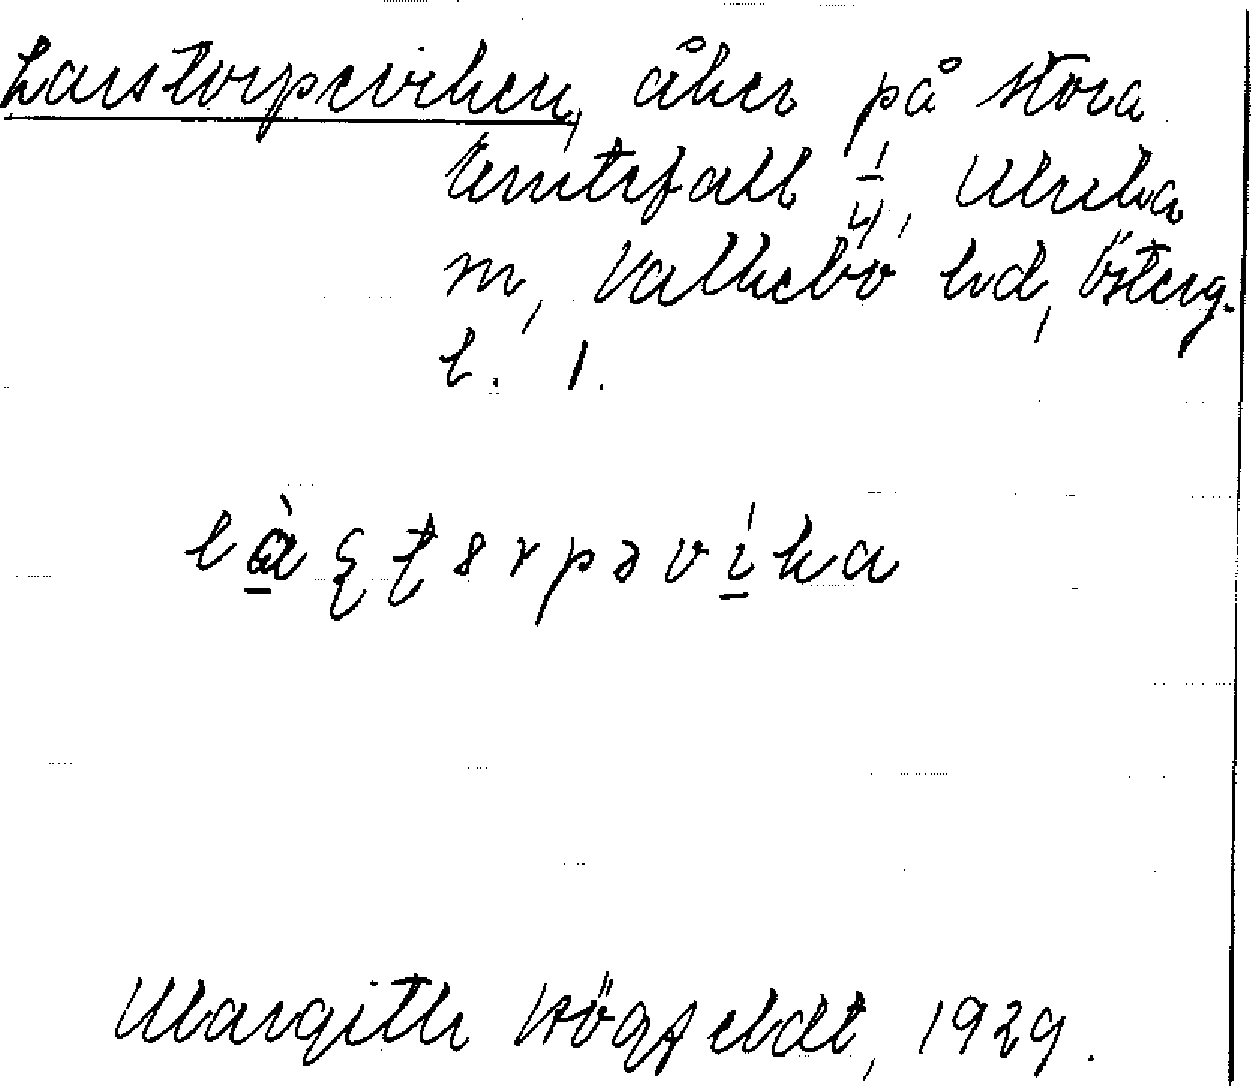 Larstorpeviken, åker på Stora
Emtefall 1/4, Ulrika
sn, Valkebo hd, Österg.
l. 1.
là̱ʂʈ8rpəví̱ka
Margith Högfeldt, 1929.